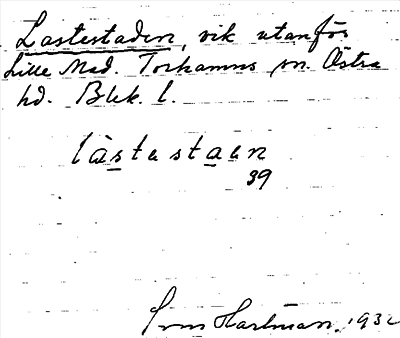 Lastestaden, vik utanför
Lille Mad. Torhamns sn. Östra
hd. Blek. l.
làstestaen
39
Hartman. 1932